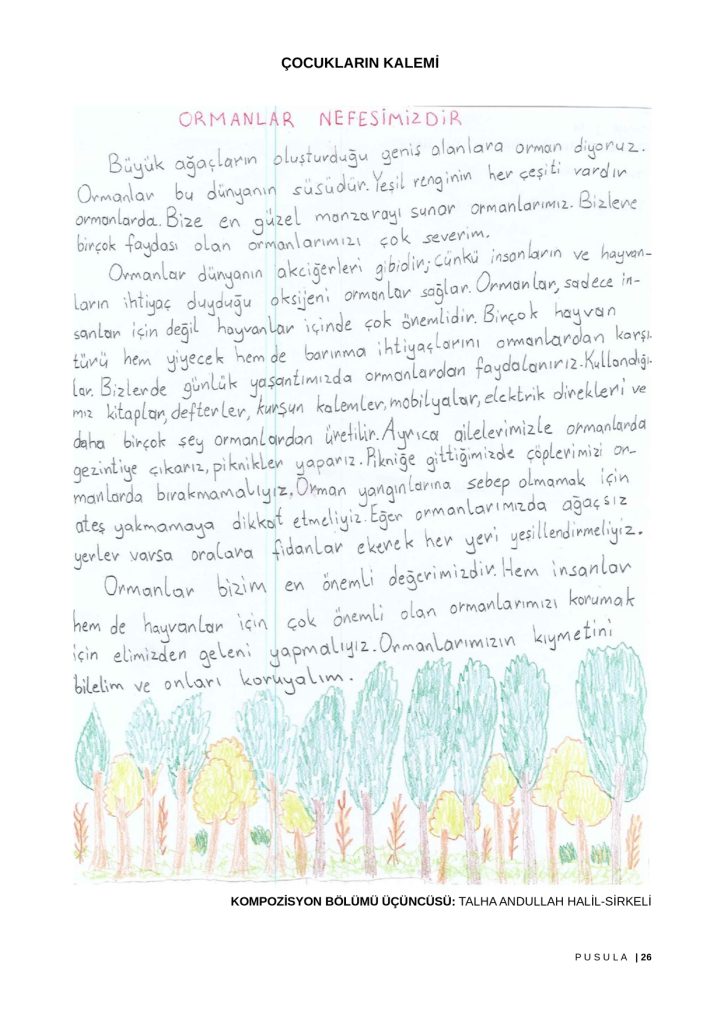 ÇOCUKLARIN KALEMİ
ORMANLAR NEFESİMİZDİR
Büyük ağaçların oluşturduğu geniş alanlara orman diyoruz.
Ormanlar bu dünyanın süsüdür. Yeşil renginin her çeşiti vardır
ormanlarda. Bize en güzel manzarayı sunar ormanlarımız. Bizlere
birçok faydası olan ormanlarımızı çok severim.
Ormanlar dünyanın akciğerleri gibidir; çünkü insanların ve hayvan-
ların ihtiyaç duyduğu oksijeni ormanlar sağlar. Ormanlar, sadece in-
sanlar için değil hayvanlar içinde çok önemlidir. Birçok hayvan
türü hem yiyecek hem de barınma ihtiyaçlarını ormanlardan karşı-
lar. Bizlerde günlük yaşantımızda ormanlardan faydalanırız. Kullandığı-
mız kitaplar, defterler, kurşun kalemler, mobilyalar, elektrik direkleri ve
daha birçok şey ormanlardan üretilir. Ayrıca ailelerimizle ormanlarda
gezintiye çıkarız, piknikler yaparız. Pikniğe gittiğimizde çöplerimizi or-
manlarda bırakmamalıyız. Orman yangınlarına sebep olmamak için
ateş yakmamaya dikkat etmeliyiz. Eğer ormanlarımızda ağaçsız
yerler varsa oralara fidanlar ekerek her yeri yeşillendirmeliyiz.
Ormanlar bizim en önemli değerimizdir. Hem insanlar
hem de hayvanlar için çok önemli olan ormanlarımızı korumak
için elimizden geleni yapmalıyız. Ormanlarımızın kıymetini
bilelim ve onları koruyalım.
KOMPOZİSYON BÖLÜMÜ ÜÇÜNCÜSÜ: TALHA ANDULLAH HALİL-SİRKELİ
PUSULA | 26